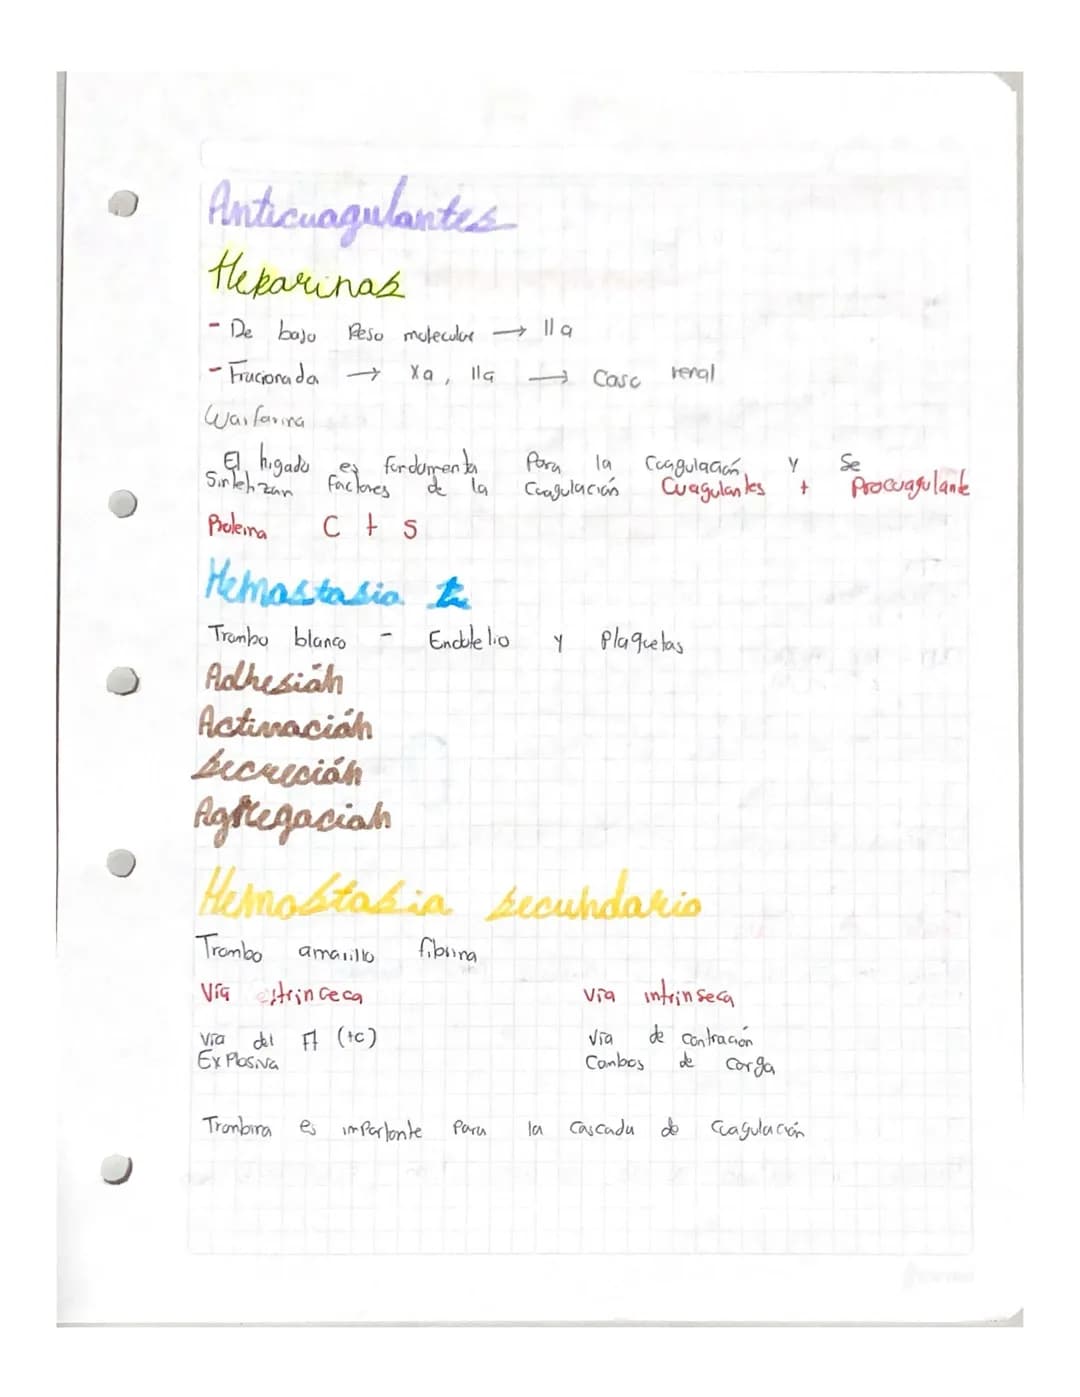 Anticuagulantes
Heparinas
- De bajo Peso molecular → IIa
- Fracionada → Xa, IIa → Casc renal
Warfarina
El higado es fundamenta Para la Coagulación y Se
Sintetizan factores de la Cuagulación Cuagulantes + Procuagulante
Proteina C + S
Hemostasia
Trombo blanco - Endotelio y Plaquetas
Adhesión
Activación
Secreción
Agregación
Hemostasia Secundario
Trombo amarillo fibrina
Vía extrinceca Vía intrinseca
Vía del FT (tc) Vía de contración
Explosiva Cambos de Carga
Trombina es importante Para la Cascada de Cuagulación